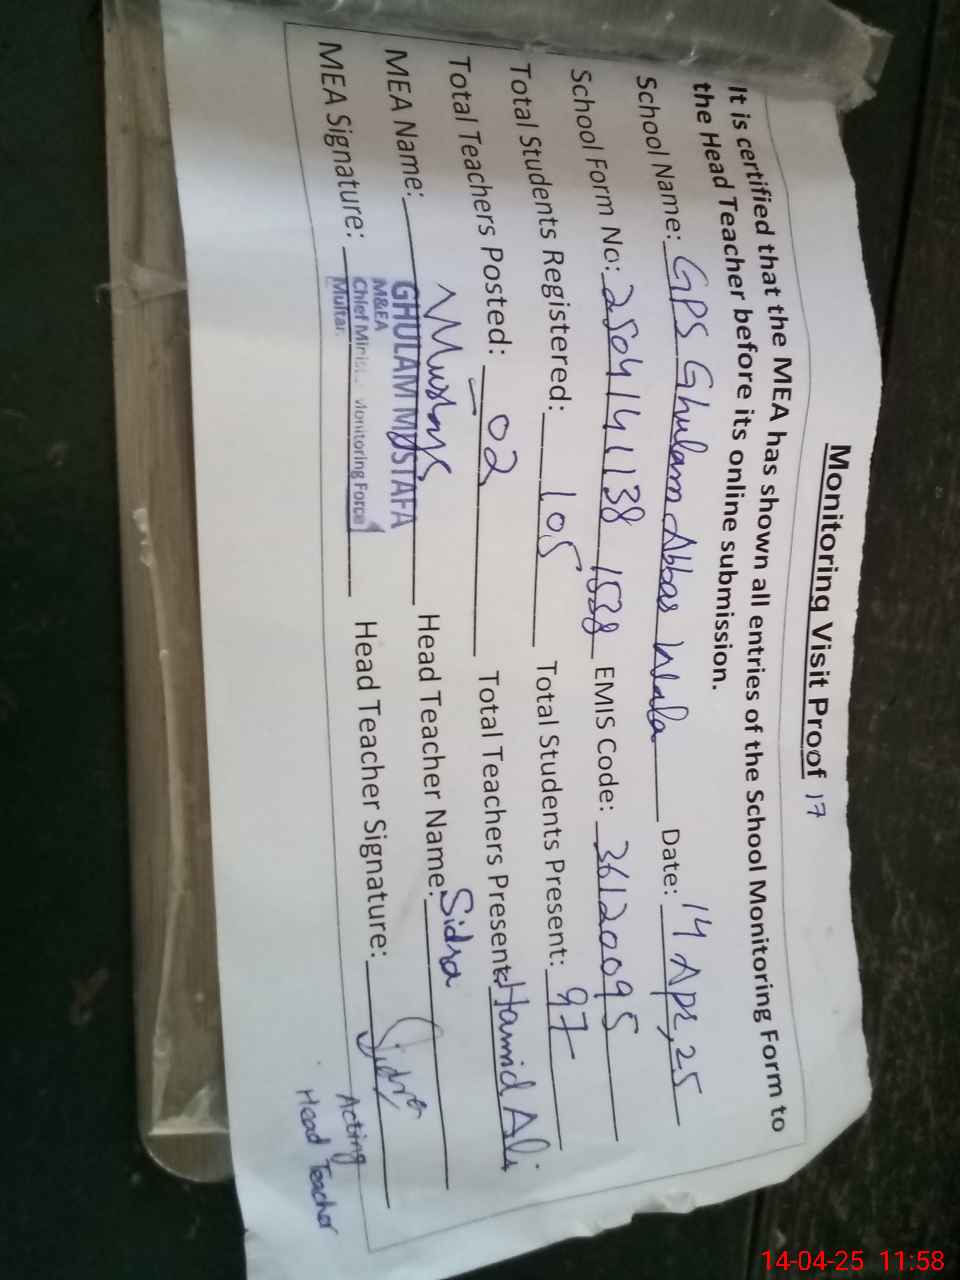 Monitoring Visit Proof 17
It is certified that the MEA has shown all entries of the School Monitoring Form to
the Head Teacher before its online submission.
School Name: GPS Ghulam Abbas Wala Date: 14 Apr, 25
School Form No: 2504141138 1528 EMIS Code: 36120095
Total Students Registered: 105 Total Students Present: 97
Total Teachers Posted: 02 Total Teachers Present: Hamid Ali
MEA Name: GHULAM MUSTAFA Head Teacher Name: Sidra
M&EA
MEA Signature: Head Teacher Signature: Sidra
Monitoring Force
Multan
Acting
Head Teacher
14-04-25 11:58